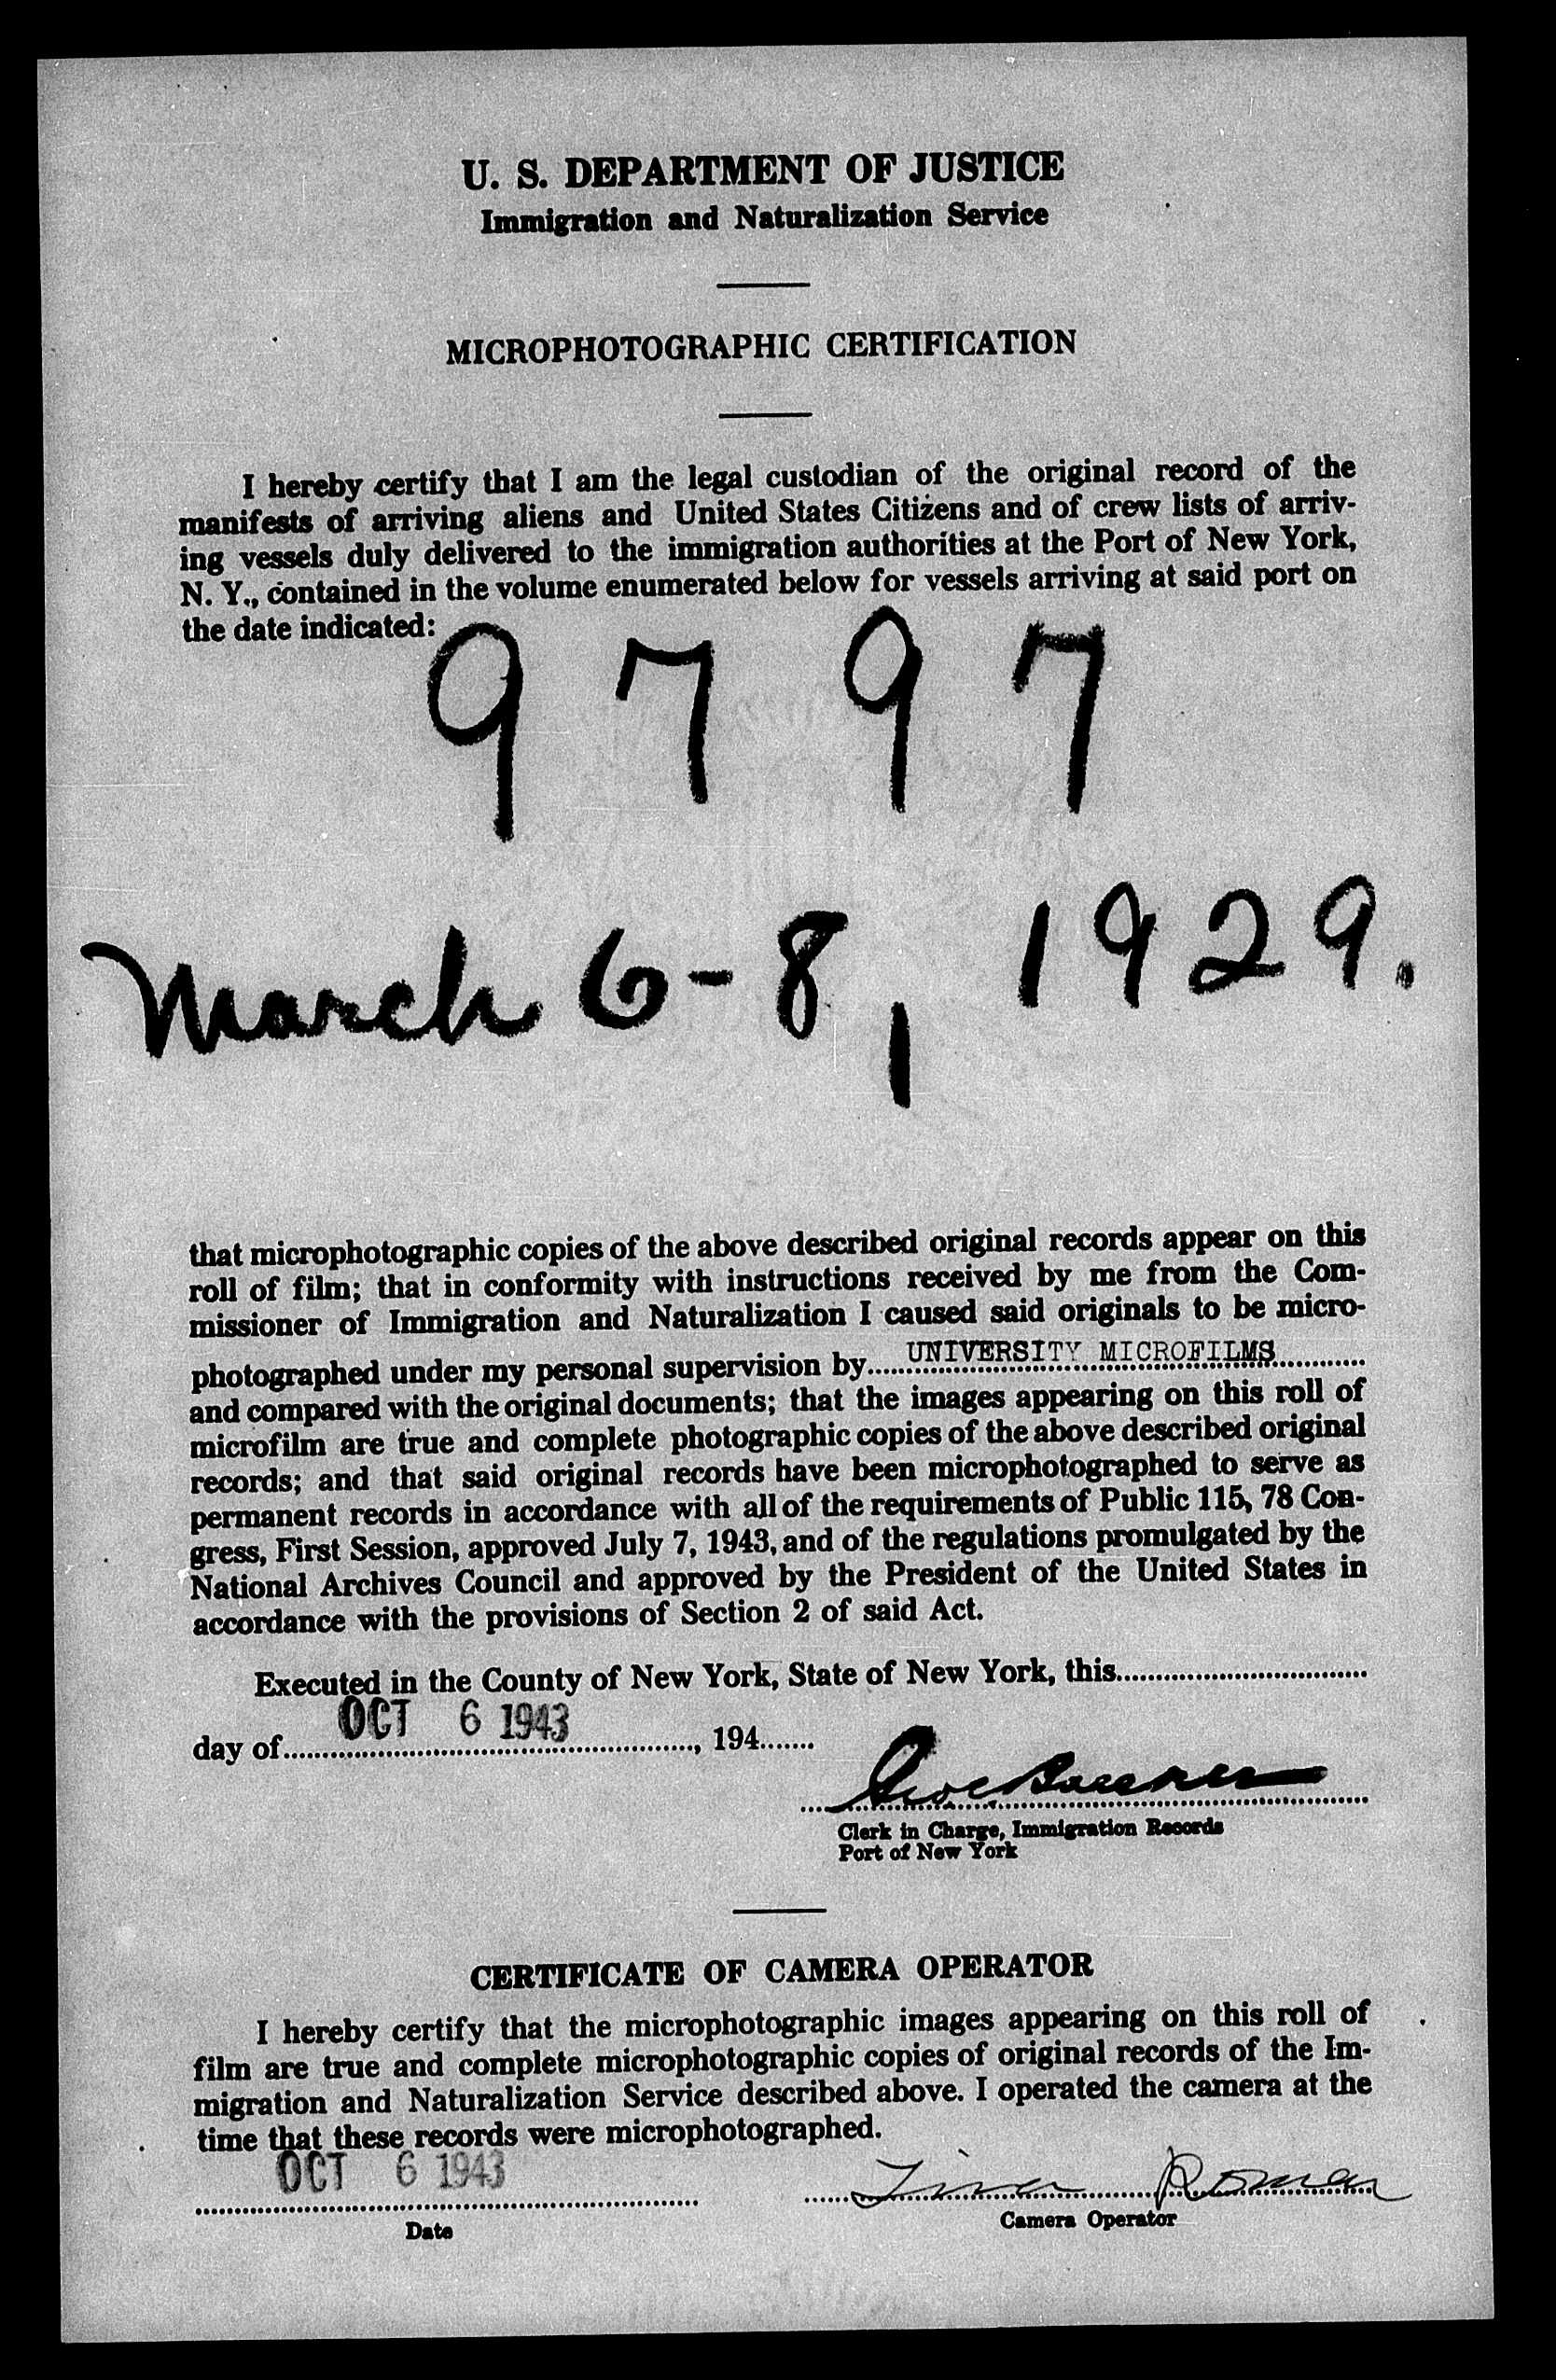 U. S. DEPARTMENT OF JUSTICE
Immigration and Naturalization Service
MICROPHOTOGRAPHIC CERTIFICATION
I hereby certify that I am the legal custodian of the original record of the
manifests of arriving aliens and United States Citizens and of crew lists of arriv-
ing vessels duly delivered to the immigration authorities at the Port of New York,
N. Y., contained in the volume enumerated below for vessels arriving at said port on
the date indicated:
9797
March 6-8, 1929.
that microphotographic copies of the above described original records appear on this
roll of film; that in conformity with instructions received by me from the Com-
missioner of Immigration and Naturalization I caused said originals to be micro-
photographed under my personal supervision by UNIVERSITY MICROFILMS
and compared with the original documents; that the images appearing on this roll of
microfilm are true and complete photographic copies of the above described original
records; and that said original records have been microphotographed to serve as
permanent records in accordance with all of the requirements of Public 115, 78 Con-
gress, First Session, approved July 7, 1943, and of the regulations promulgated by the
National Archives Council and approved by the President of the United States in
accordance with the provisions of Section 2 of said Act.
Executed in the County of New York, State of New York, this
day of OCT 6 1943, 194
Clerk in Charge, Immigration Records
Port of New York
CERTIFICATE OF CAMERA OPERATOR
I hereby certify that the microphotographic images appearing on this roll of
film are true and complete microphotographic copies of original records of the Im-
migration and Naturalization Service described above. I operated the camera at the
time that these records were microphotographed.
OCT 6 1943 Roman
Date Camera Operator